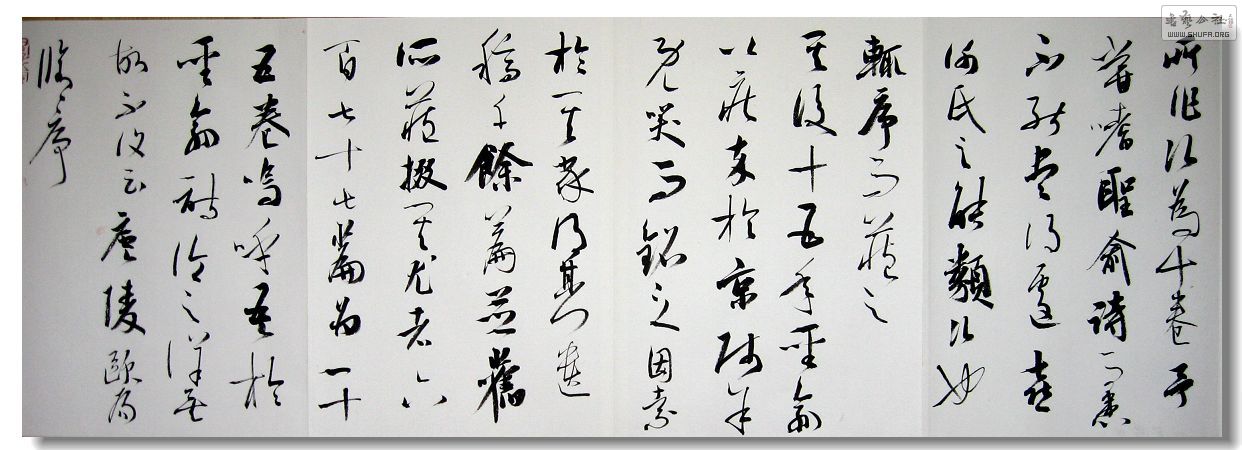 所作次為十卷予
嘗嗜聖俞詩而患
不能盡得遽喜
謝氏之能類次也
輒序而藏之
其後十五年聖俞
以疾卒於京師余
既哭而銘之因索
於其家得其遺
稿千餘篇並舊
所藏掇其尤者六
百七十七篇為一十
五卷嗚呼吾於
聖俞詩論之詳矣
故不復云廬陵歐陽
脩序
書藝公社
WWW.SHUFA.ORG